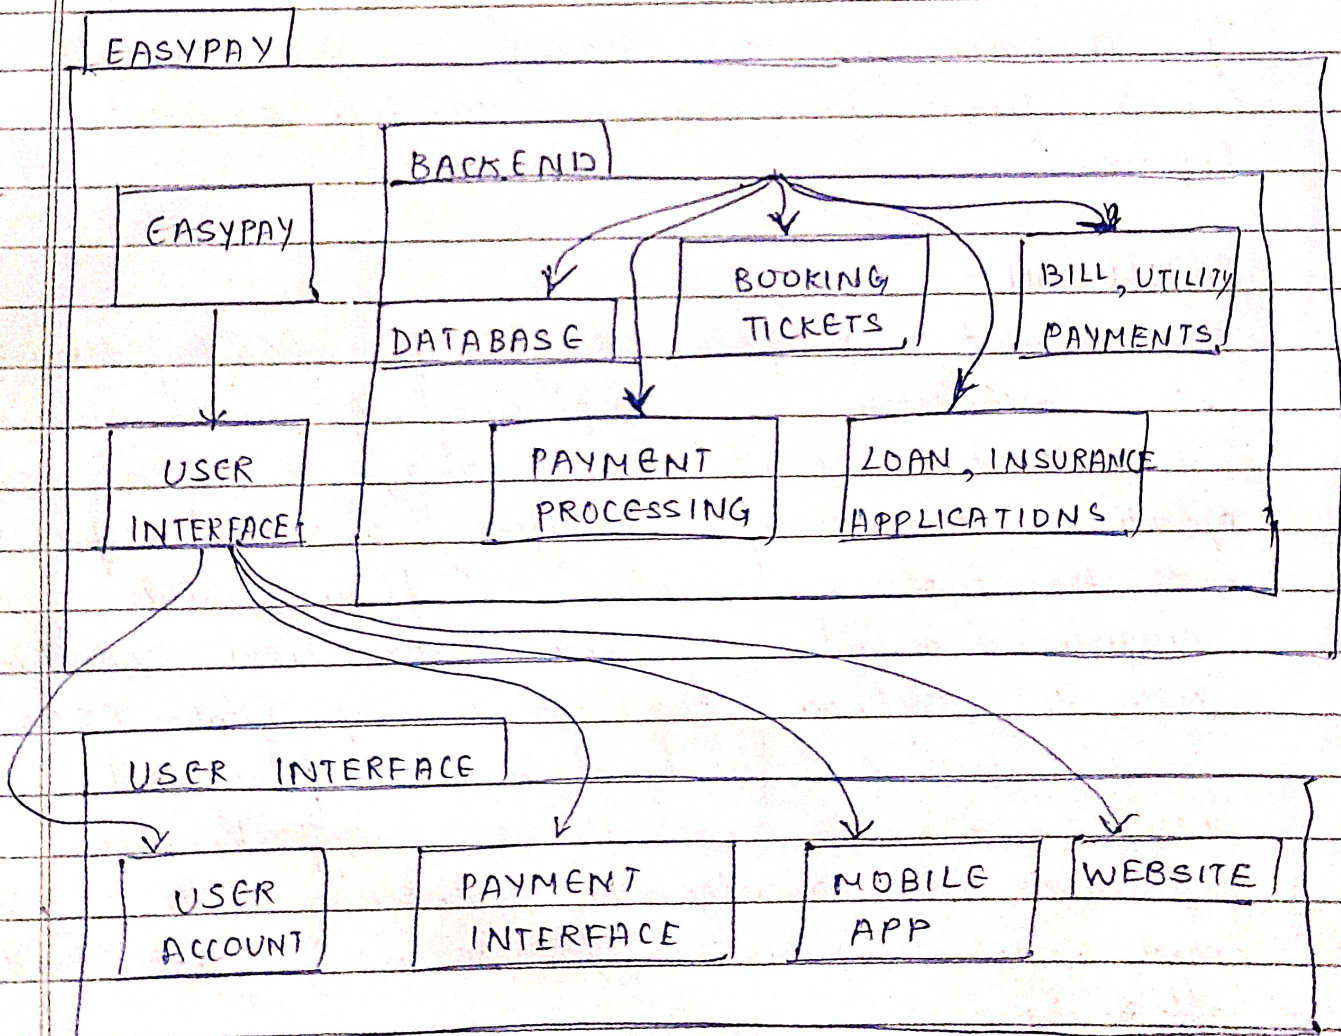 EASYPAY
BACKEND
EASYPAY
BOOKING
TICKETS
BILL, UTILITY
PAYMENTS
DATABASE
USER
INTERFACE
PAYMENT
PROCESSING
LOAN, INSURANCE
APPLICATIONS
USER INTERFACE
USER
ACCOUNT
PAYMENT
INTERFACE
MOBILE
APP
WEBSITE